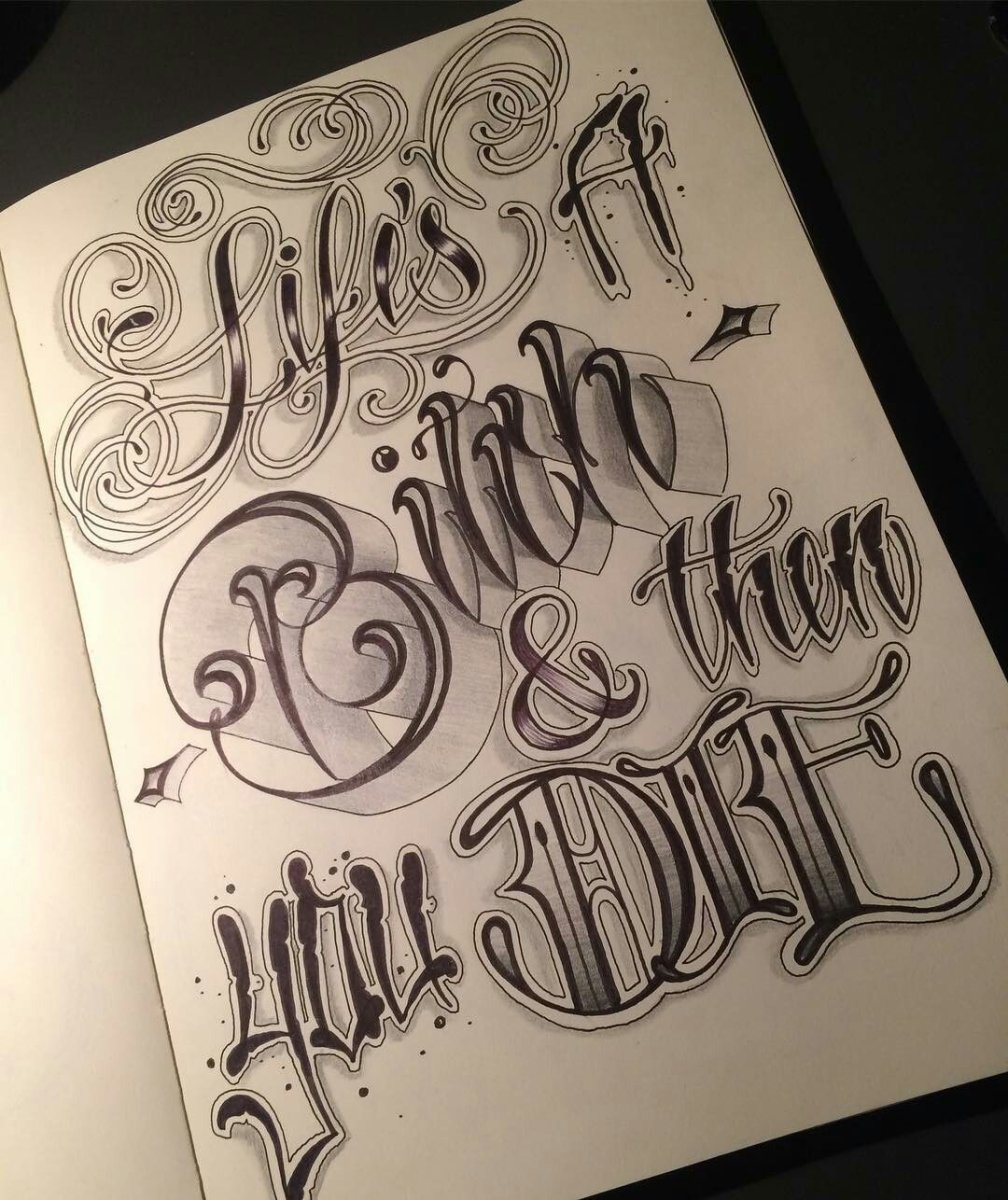 Life's A
Bitch
& then
you DIE